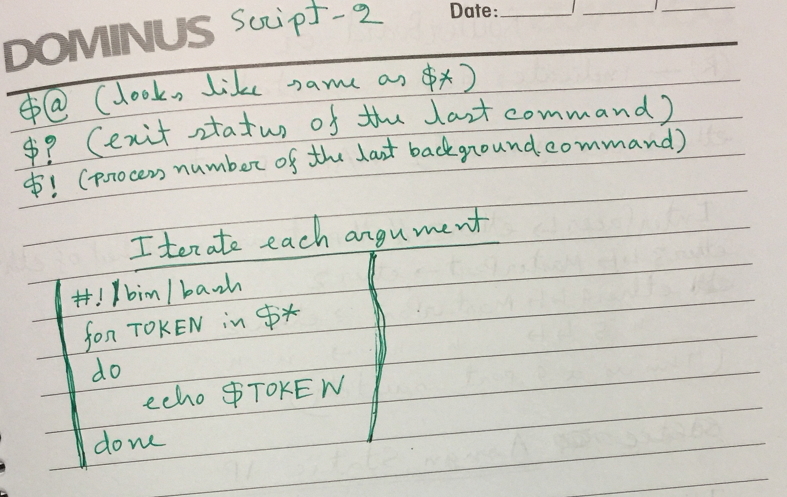 DOMINUS
Script-2
Date:
$@ (looks like same as $*)
$? (exit status of the last command)
$! (process number of the last background command)
Iterate each argument
#!/bin/bash
for TOKEN in $*
do
echo $TOKEN
done